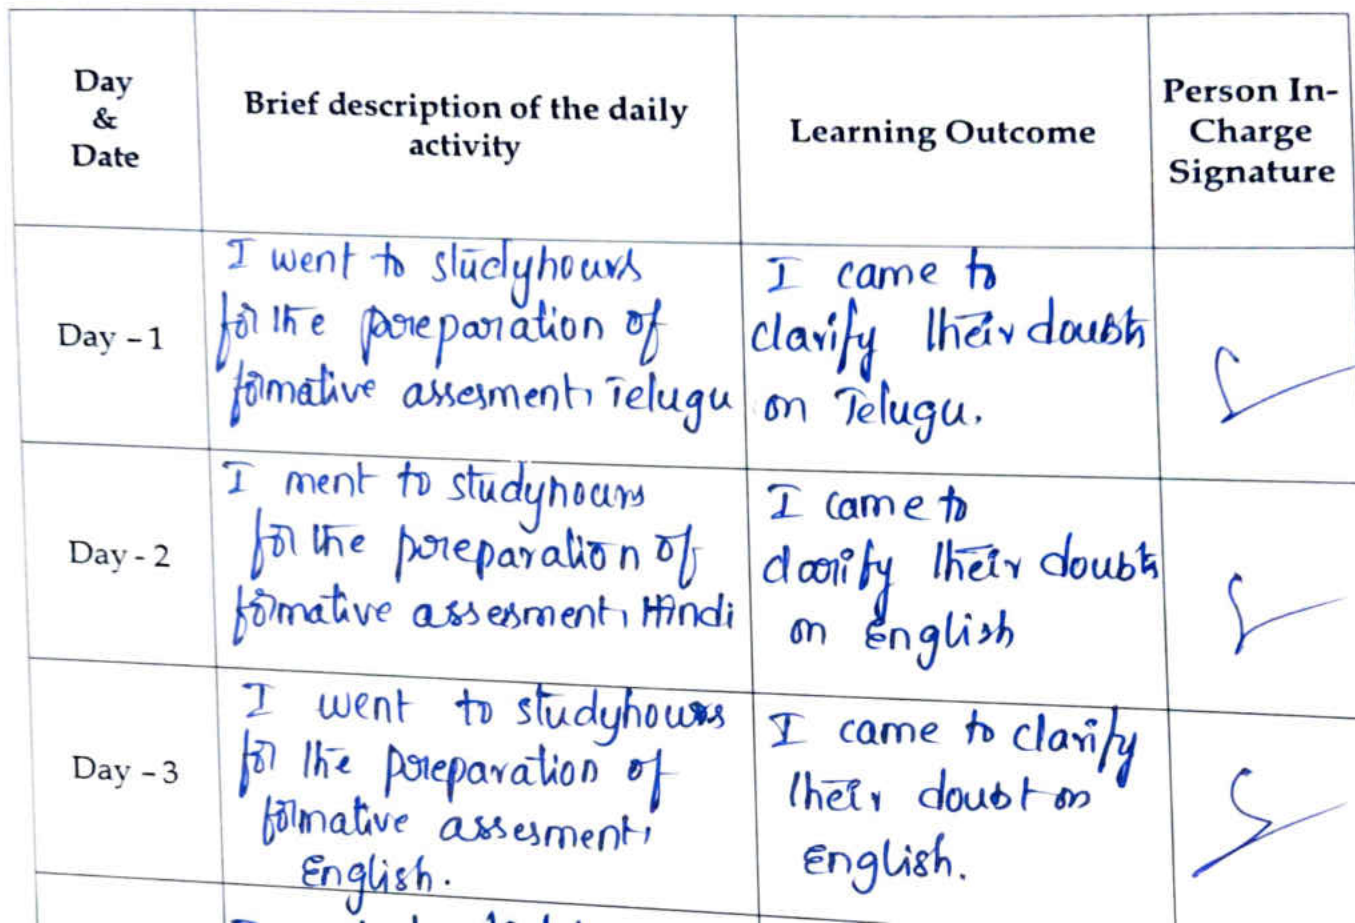 Day
&
Date
Brief description of the daily
activity
Learning Outcome
Person In-
Charge
Signature
Day - 1
I went to studyhours
for the preparation of
formative assesment, Telugu
I came to
clarify their doubts
on Telugu.
Day - 2
I ment to studyhours
for the preparation of
formative assesment, Hindi
I came to
clarify their doubts
on English
Day - 3
I went to studyhours
for the preparation of
formative assesment,
English.
I came to clarify
their doubt on
English.